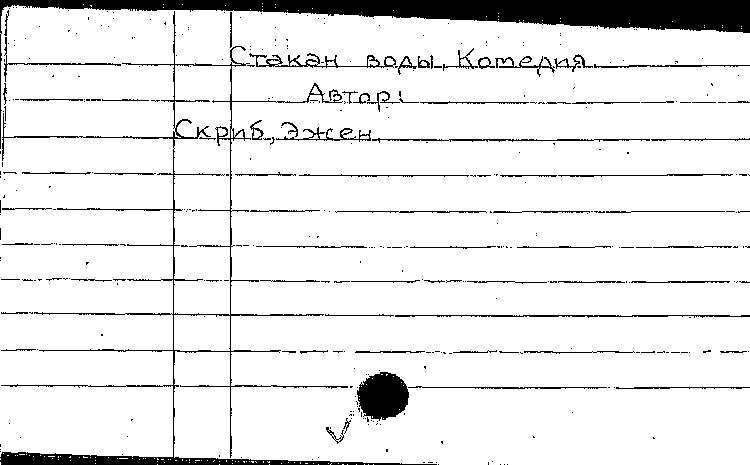 Стакан воды. Комедия.
Автор:
Скриб, Эжен.